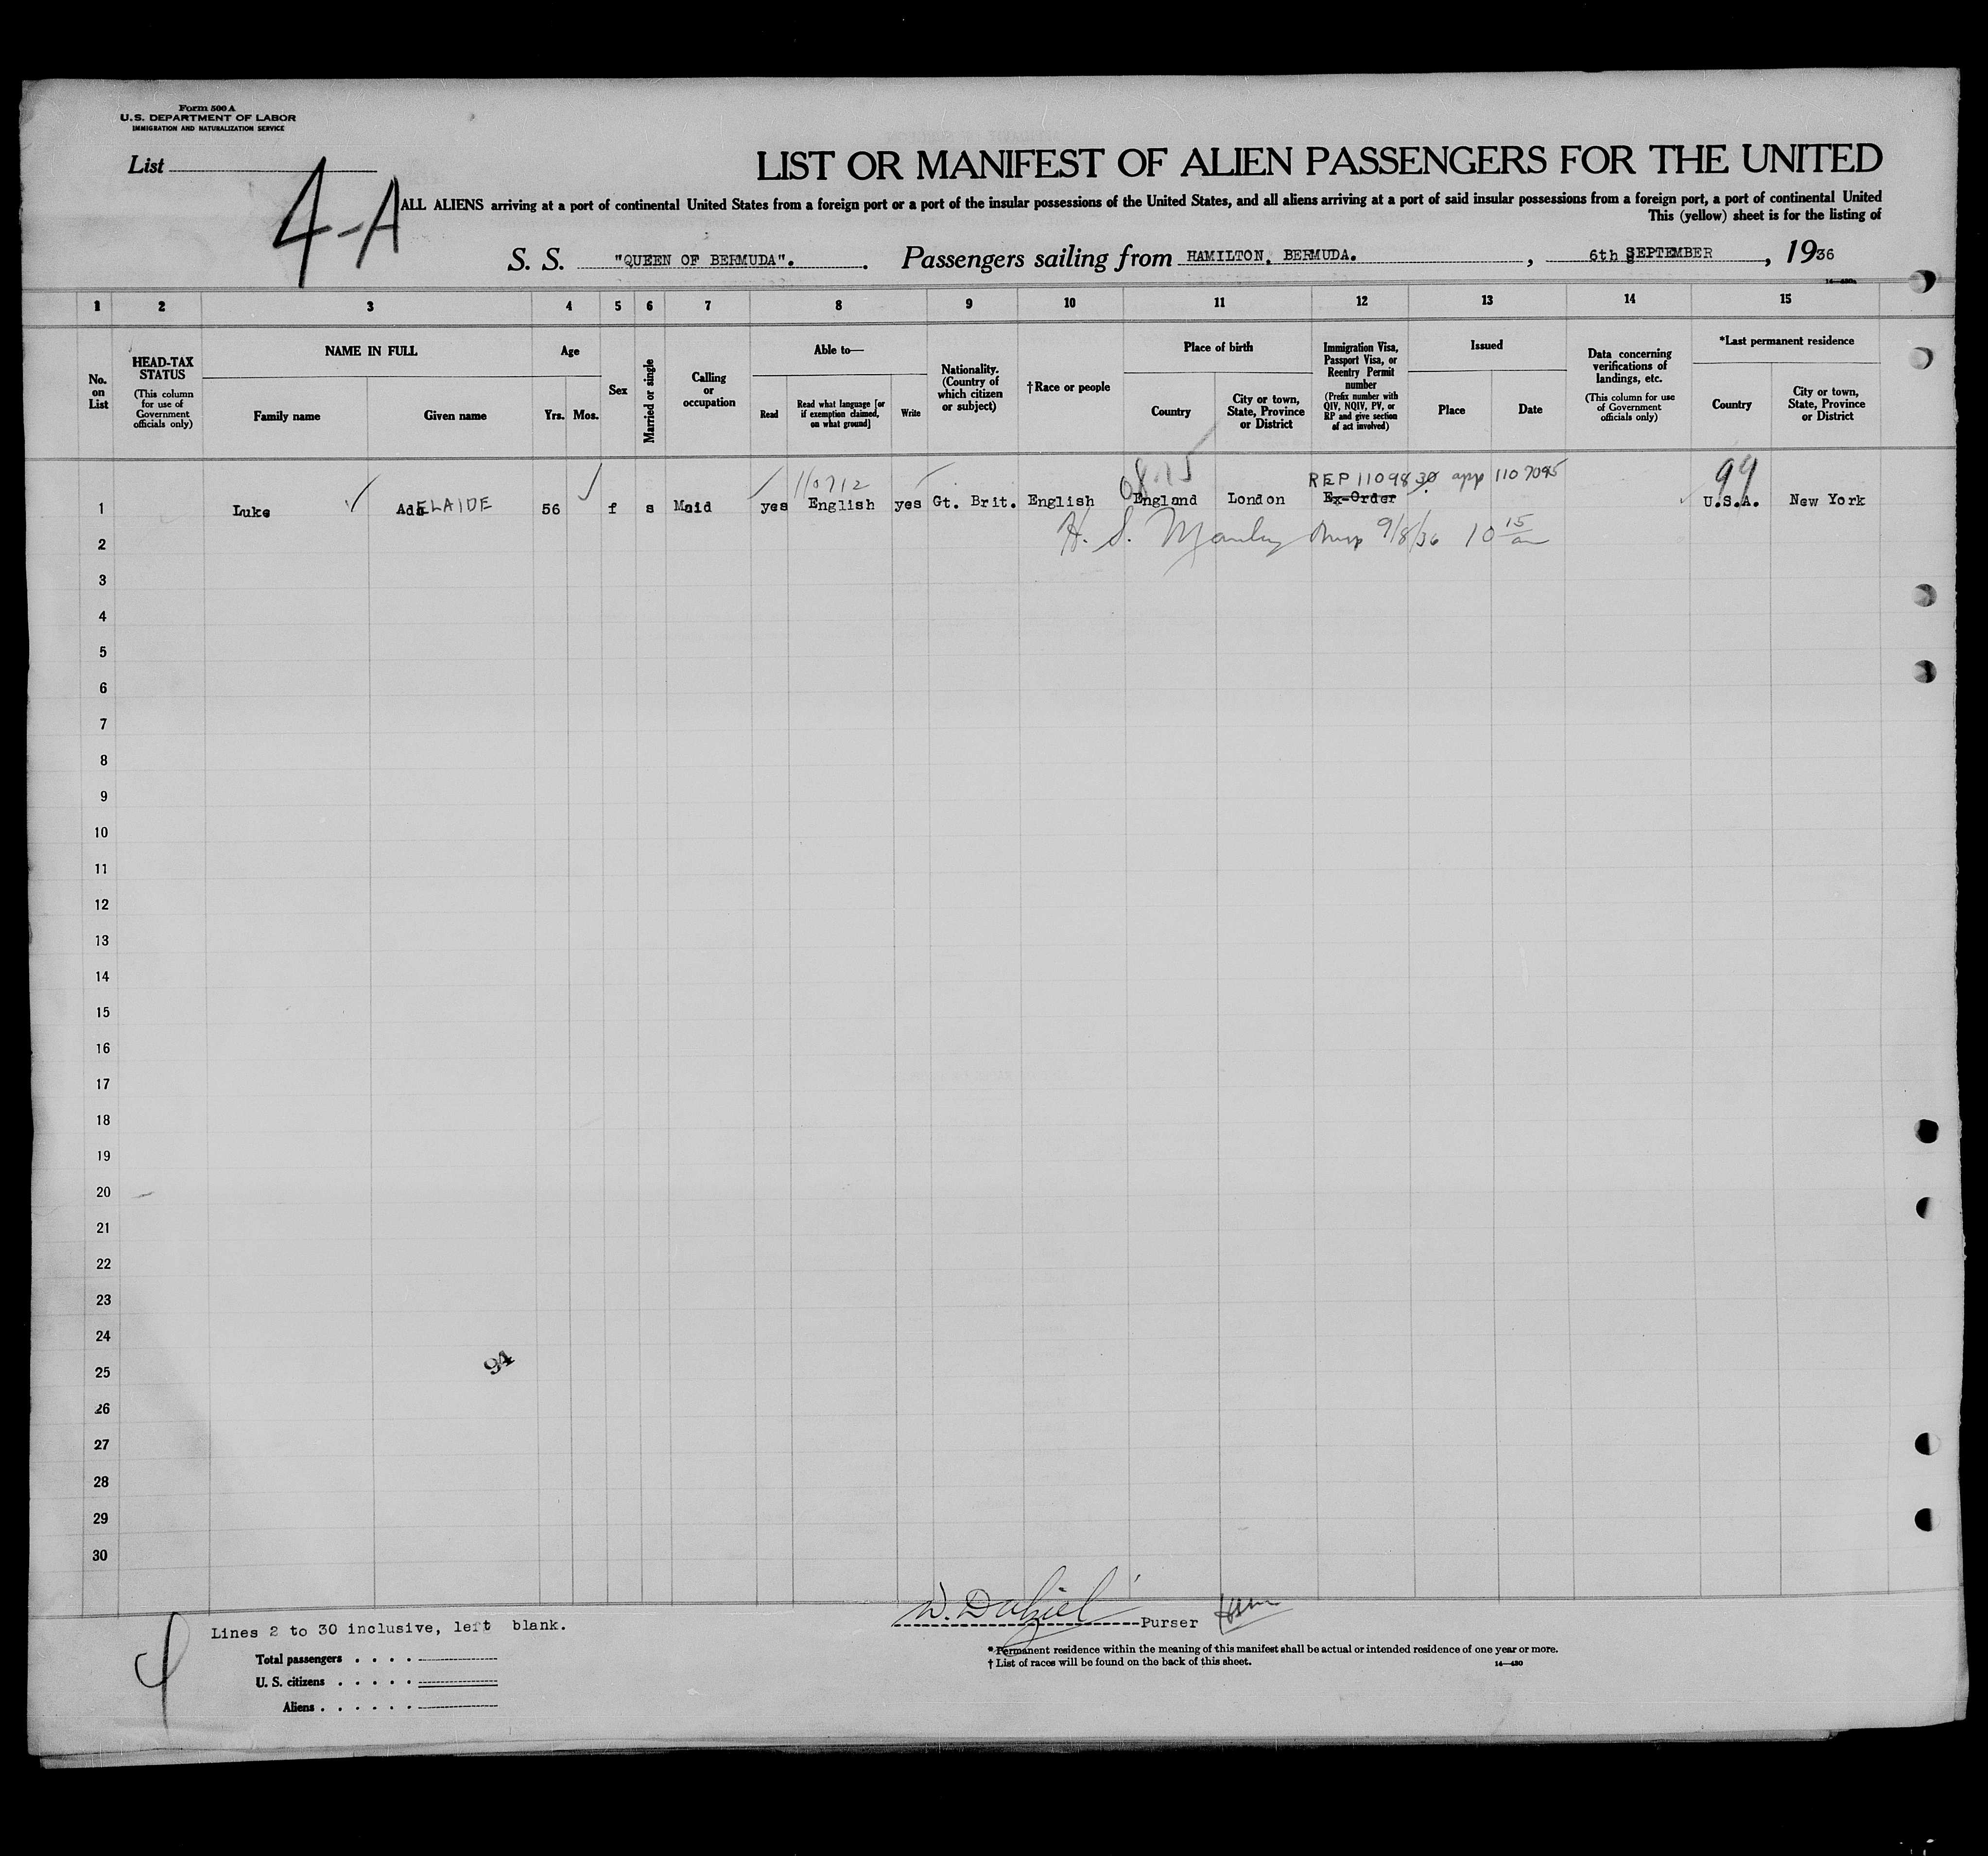 Form 500 A
U.S. DEPARTMENT OF LABOR
IMMIGRATION AND NATURALIZATION SERVICE
List
4-A
LIST OR MANIFEST OF ALIEN PASSENGERS FOR THE UNITED
ALL ALIENS arriving at a port of continental United States from a foreign port or a port of the insular possessions of the United States, and all aliens arriving at a port of said insular possessions from a foreign port, a port of continental United
This (yellow) sheet is for the listing of
S. S. "QUEEN OF BERMUDA". Passengers sailing from HAMILTON, BERMUDA. , 6th SEPTEMBER , 1936
1 2 3 4 5 6 7 8 9 10 11 12 13 14 15
No. on List
HEAD-TAX STATUS
(This column for use of Government officials only)
NAME IN FULL
Family name
Given name
Age
Yrs. Mos.
Sex
Married or single
Calling or occupation
Able to—
Read
Read what language [or if exemption claimed, on what ground]
Write
Nationality. (Country of which citizen or subject)
†Race or people
Place of birth
Country
City or town, State, Province or District
Immigration Visa, Passport Visa, or Reentry Permit number
(Prefix number with QIV, NQIV, PV, or RP and give section of act involved)
Issued
Place
Date
Data concerning verifications of landings, etc.
(This column for use of Government officials only)
*Last permanent residence
Country
City or town, State, Province or District
110712 REP 1109830 app 1107095 99
1 Luke AdELAIDE 56 f s Maid yes English yes Gt. Brit. English England London Ex-Order U.S.A. New York
2 H. S. Manley 9/8/36 10 15 am
3
4
5
6
7
8
9
10
11
12
13
14
15
16
17
18
19
20
21
22
23
24
94
25
26
27
28
29
30
Lines 2 to 30 inclusive, left blank.
W. Dalziel Purser
Total passengers
U. S. citizens
Aliens
* Permanent residence within the meaning of this manifest shall be actual or intended residence of one year or more.
† List of races will be found on the back of this sheet.
14—430